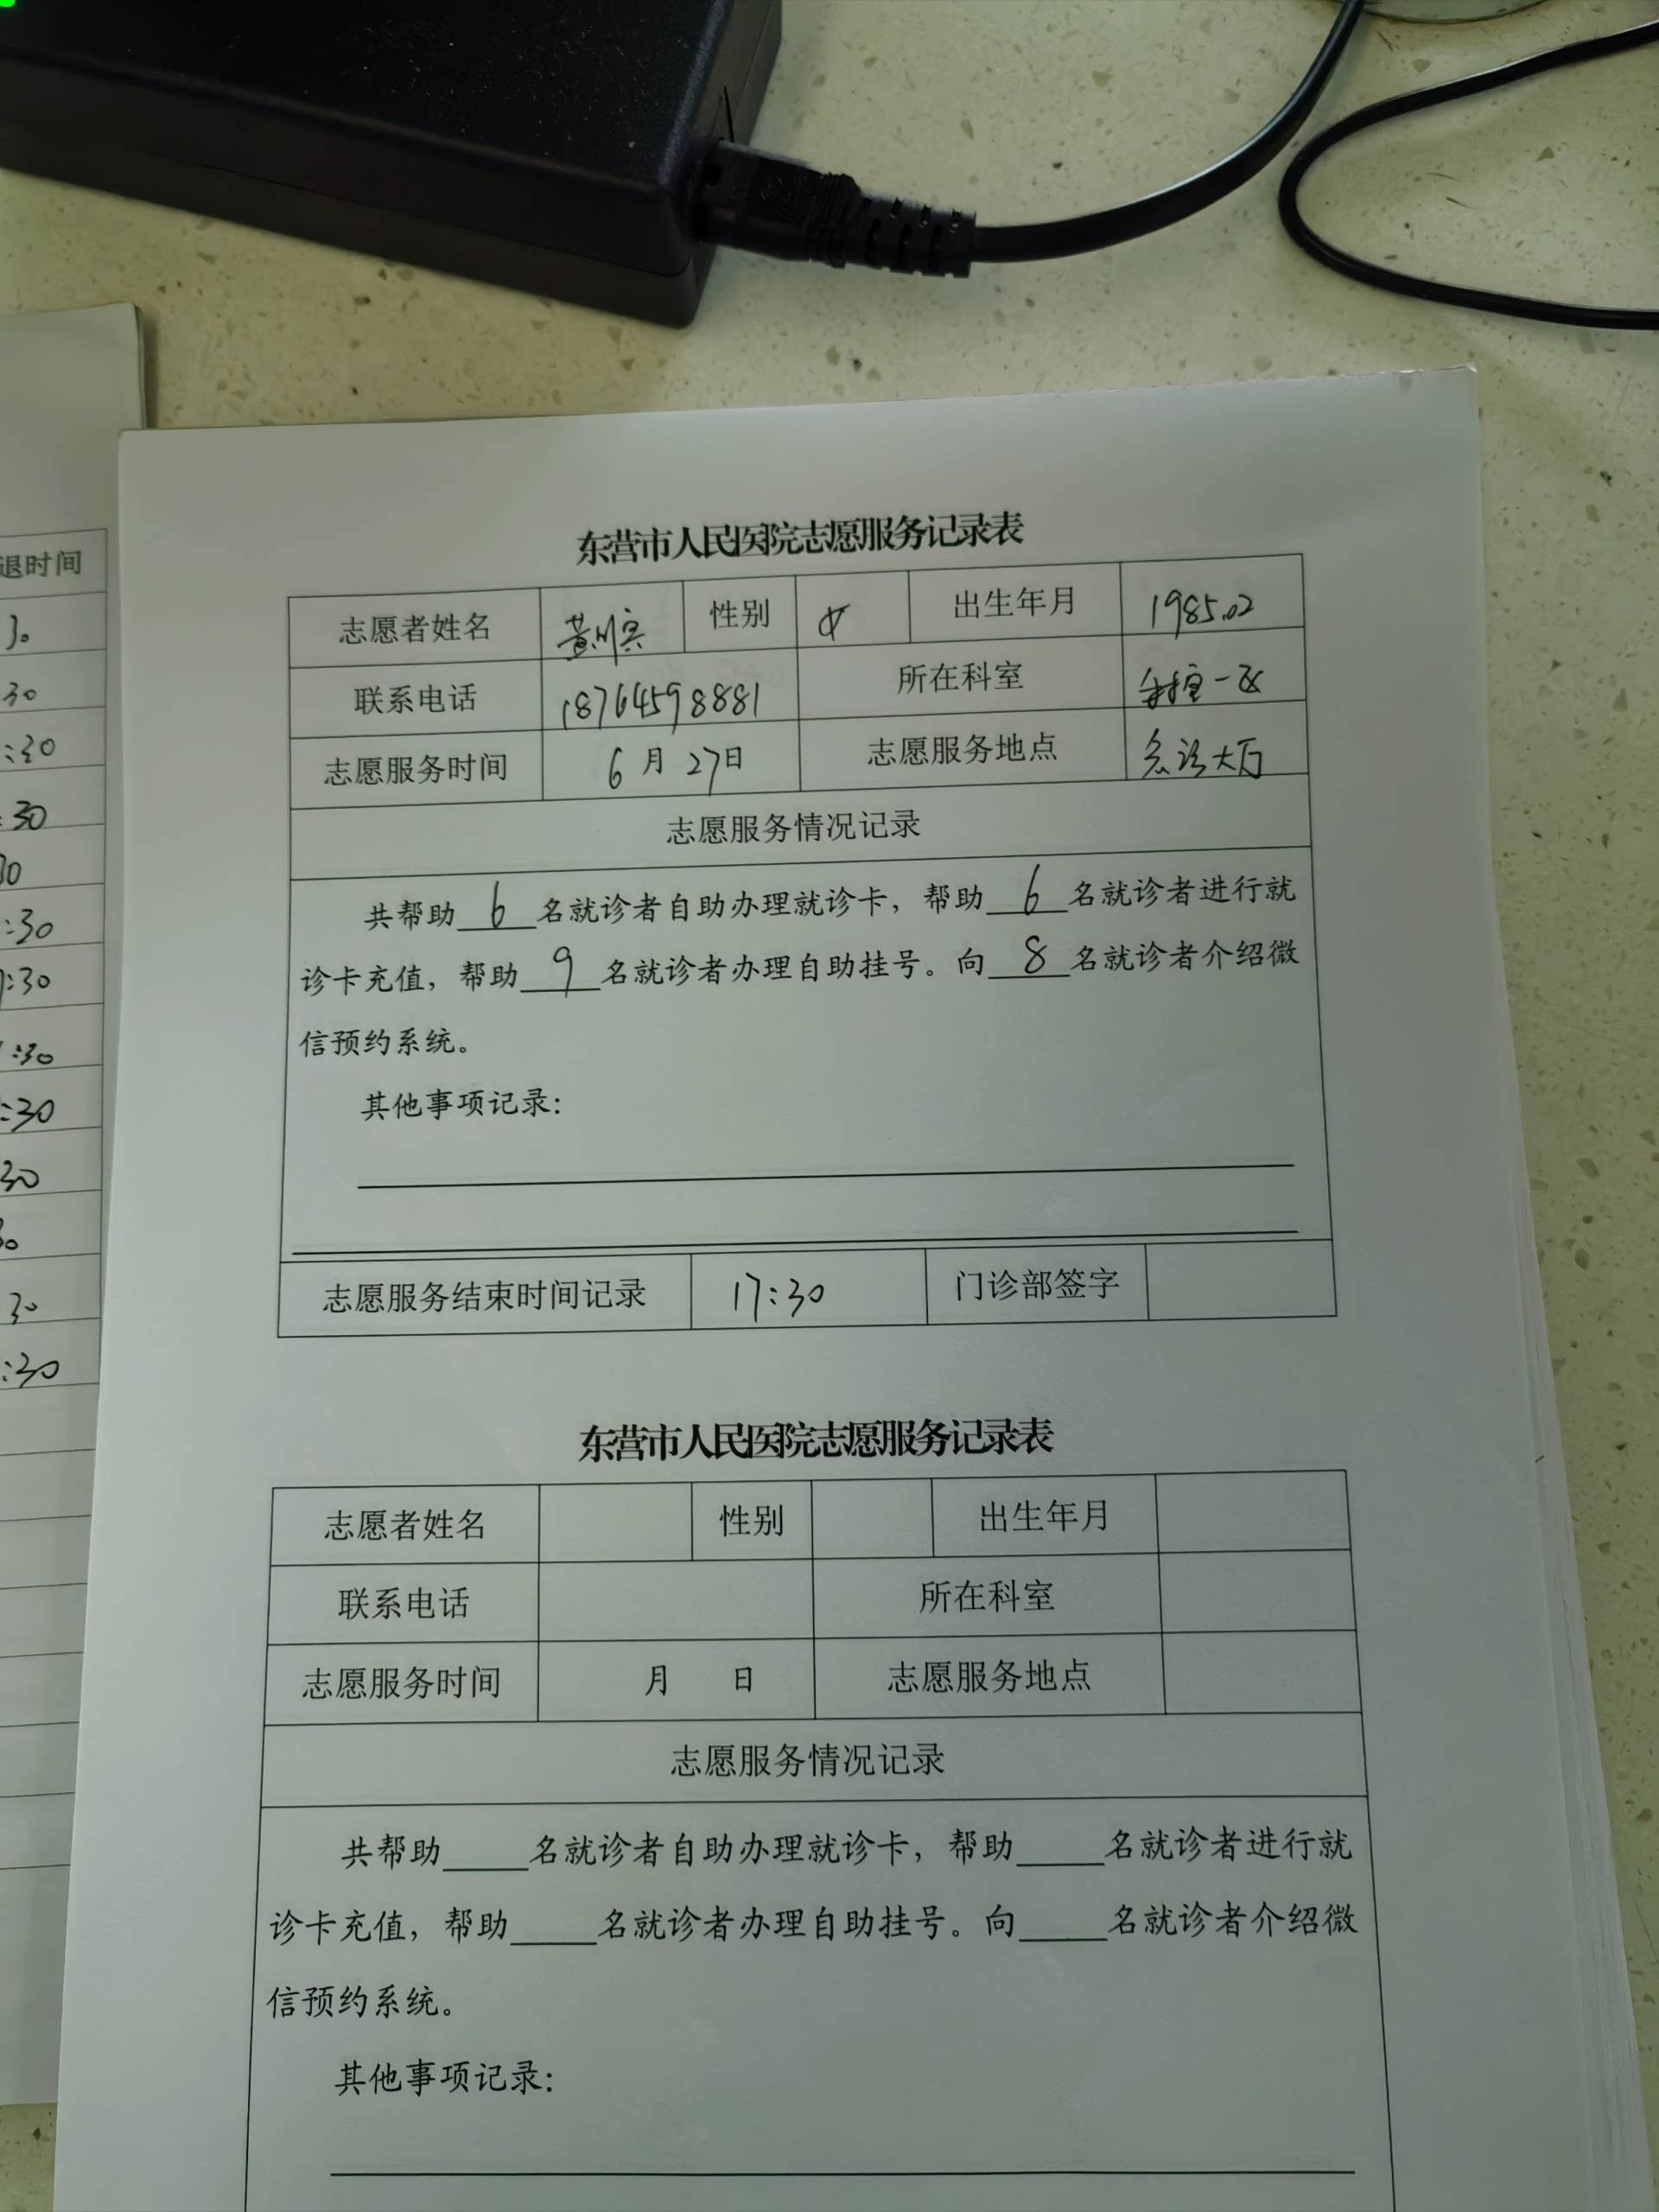 退时间
30
:30
:30
30
:30
:30
:30
:30
30
30
:30
东营市人民医院志愿服务记录表
志愿者姓名 性别 女 出生年月 1985.02
联系电话 18764598881 所在科室
志愿服务时间 6月27日 志愿服务地点 急诊大厅
志愿服务情况记录
共帮助 6 名就诊者自助办理就诊卡，帮助 6 名就诊者进行就
诊卡充值，帮助 9 名就诊者办理自助挂号。向 8 名就诊者介绍微
信预约系统。
其他事项记录：
志愿服务结束时间记录 17:30 门诊部签字
东营市人民医院志愿服务记录表
志愿者姓名 性别 出生年月
联系电话 所在科室
志愿服务时间 月 日 志愿服务地点
志愿服务情况记录
共帮助_____名就诊者自助办理就诊卡，帮助_____名就诊者进行就
诊卡充值，帮助_____名就诊者办理自助挂号。向_____名就诊者介绍微
信预约系统。
其他事项记录：